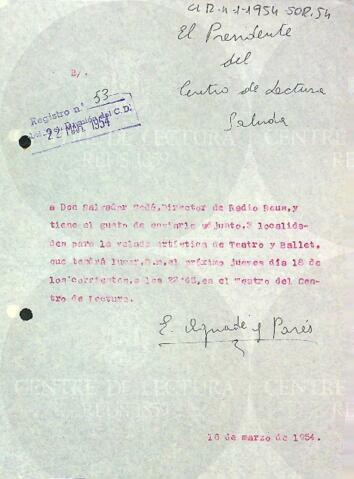 CLR-4-1-1954-SOR.54
El Presidente
del
Centro de Lectura
Saluda
B/.
Registro n.º 53
22 1954
a Don Salvador Sedó, Director de Radio Reus, y
tiene el gusto de enviarle adjunto, 3 localida-
des para la velada artística de Teatro y Ballet,
que tendrá lugar, D.m. el próximo jueves dia 18 de
los corrientes, a las 22'45, en el Teatro del Cen-
tro de Lectura.
E. Aguadé y Parés
CENTRE DE LECTURA
REUS 1859
16 de marzo de 1954.